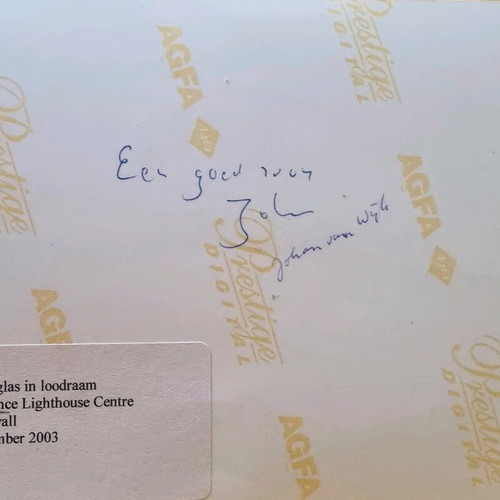 Prestige
DIGITAL
AGFA
Prestige
Een goed 2004
Joh
Johan van Wijk
AGFA
Prestige
DIGITAL
AGFA
glas in loodraam
nce Lighthouse Centre
all
mber 2003
Prestige
DIGITAL
AGFA